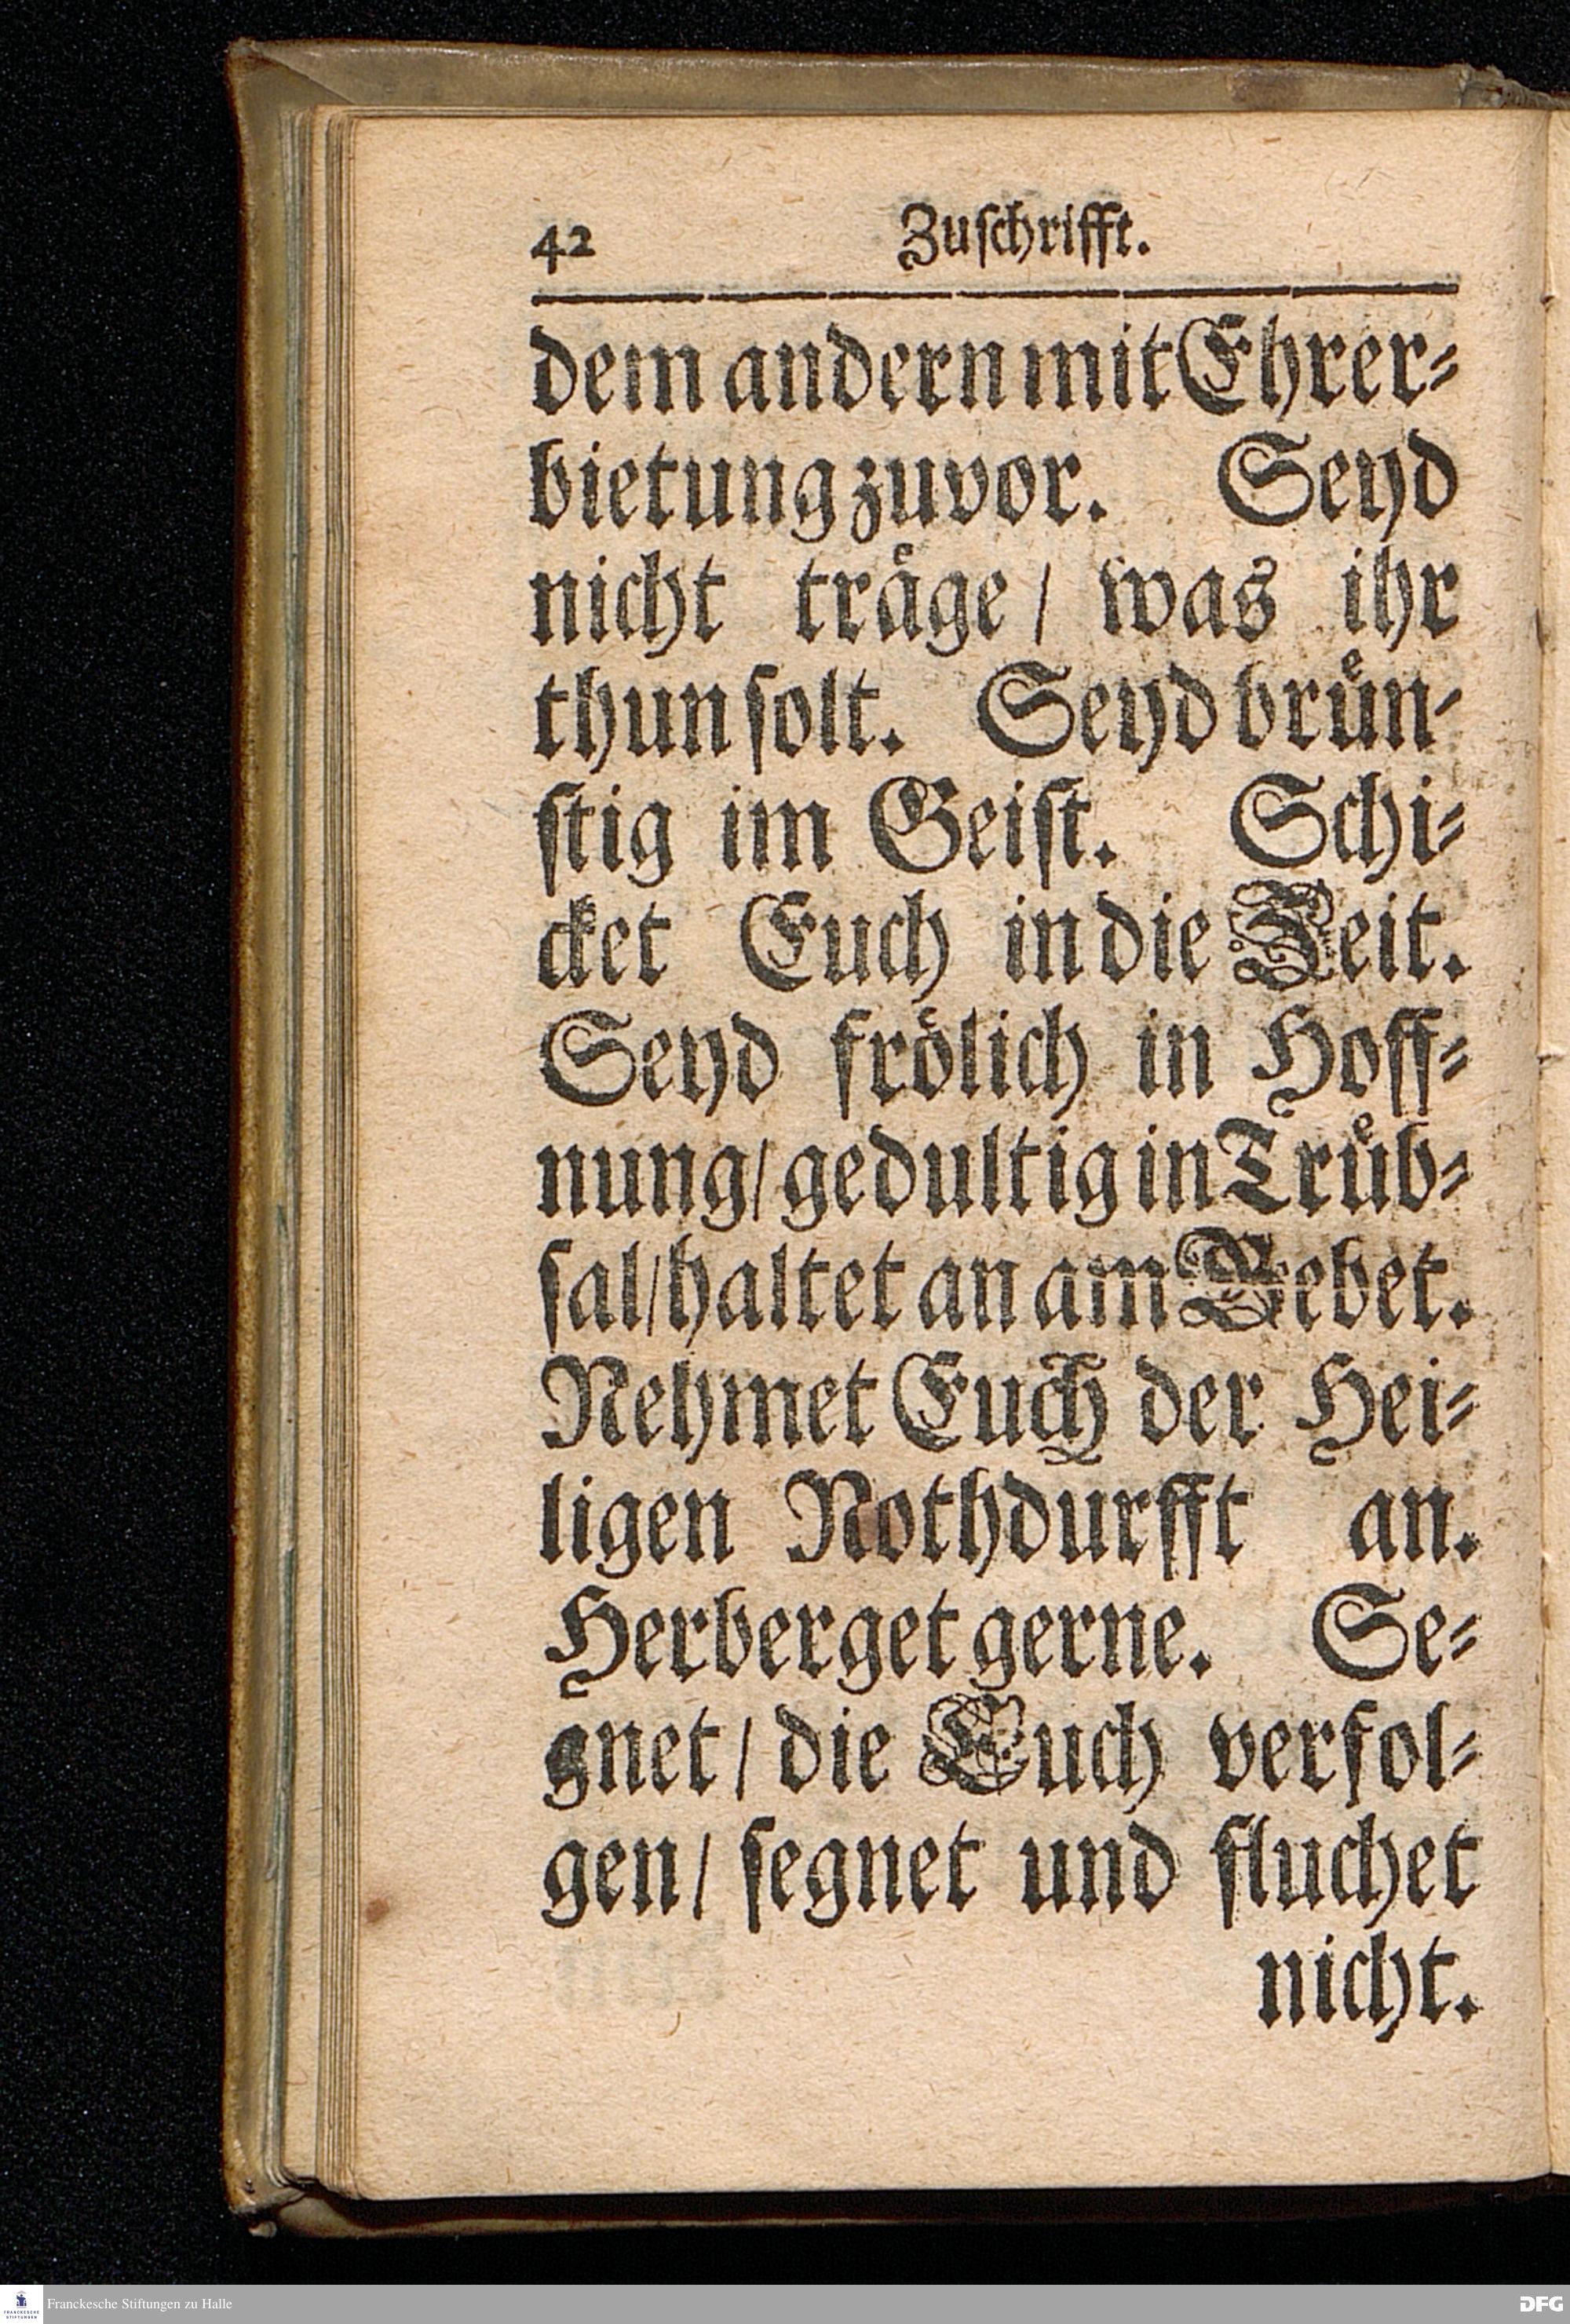 42 Zuschrifft.
dem andern mit Ehrer⸗
bietung zuvor. Seyd
nicht traͤge / was ihr
thun solt. Seyd bruͤn⸗
stig im Geist. Schi⸗
cket Euch in die Zeit.
Seyd froͤlich in Hoff⸗
nung / gedultig in Truͤb⸗
sal / haltet an am Gebet.
Nehmet Euch der Hei⸗
ligen Nothdurfft an.
Herberget gerne. Se⸗
gnet / die Euch verfol⸗
gen / segnet und fluchet
nicht.
Franckesche Stiftungen zu Halle
DFG